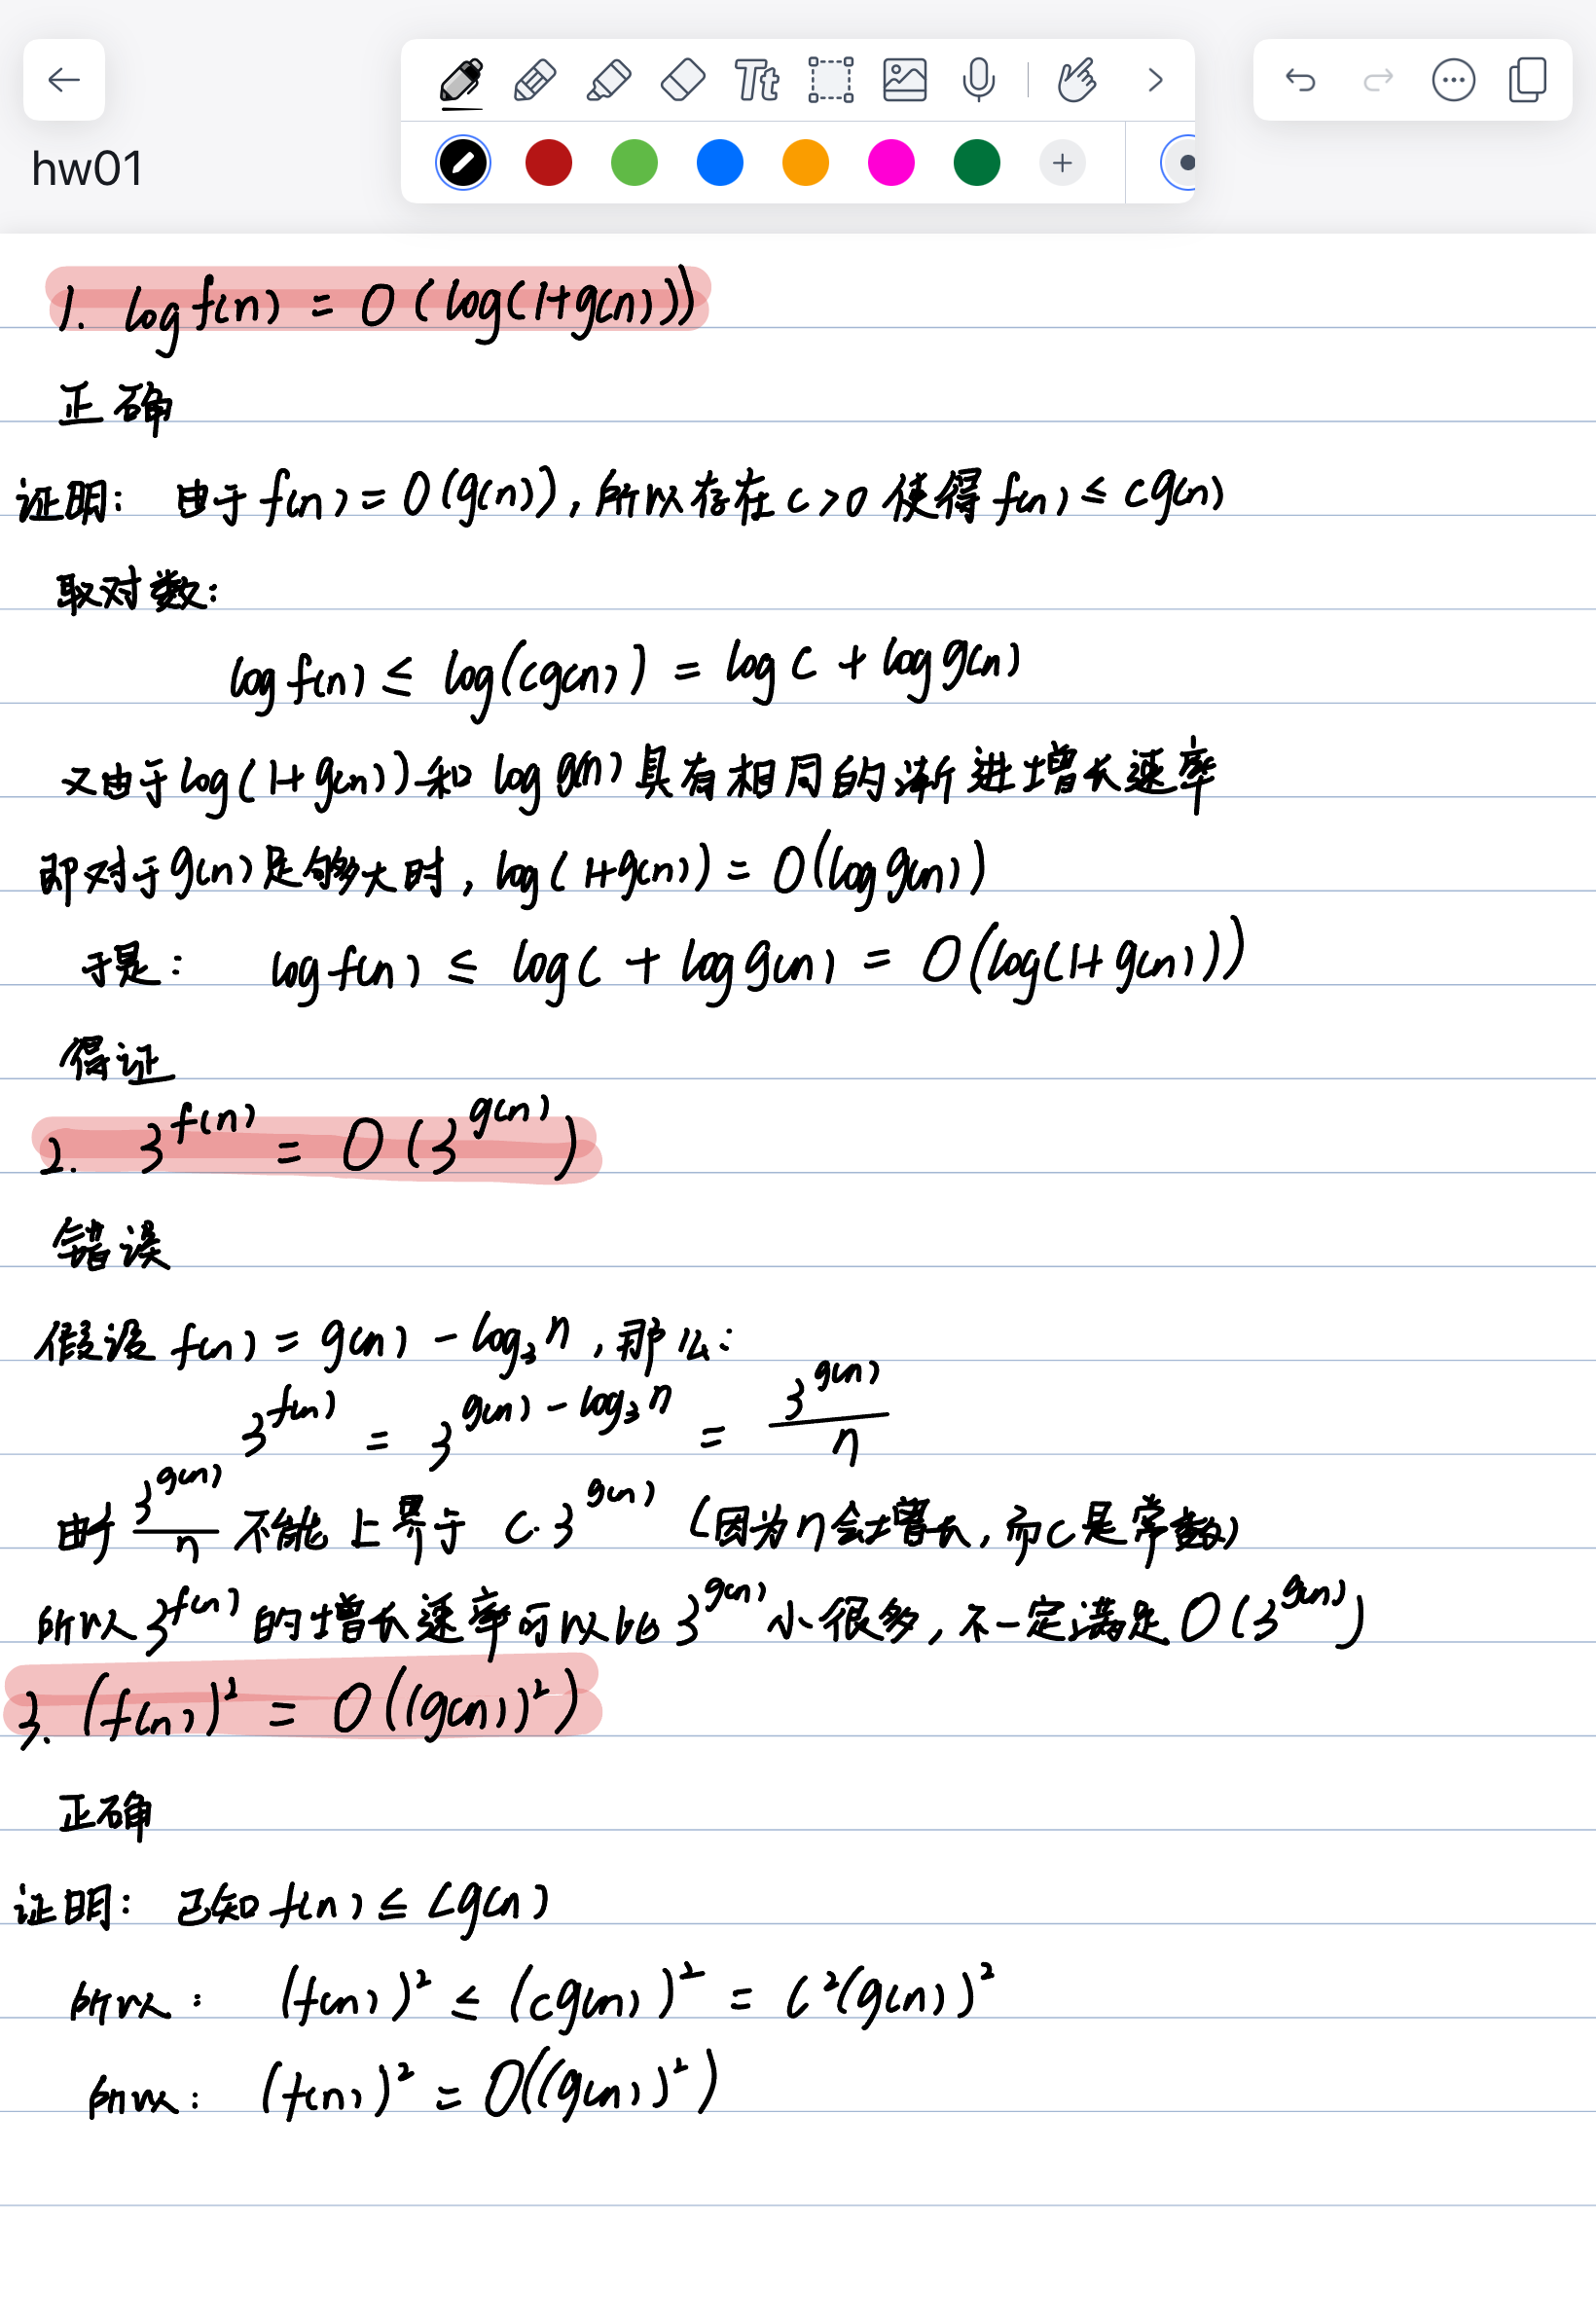 hw01
Tt
1. log f(n) = O(log(1+g(n)))
正确
证明: 由于 f(n) = O(g(n)), 所以存在 c>0 使得 f(n) ≤ cg(n)
取对数:
log f(n) ≤ log(cg(n)) = log c + log g(n)
又由于 log(1+g(n)) 和 log g(n) 具有相同的渐进增长速率
即对于 g(n) 足够大时, log(1+g(n)) = O(log g(n))
于是: log f(n) ≤ log c + log g(n) = O(log(1+g(n)))
得证
2. 3^f(n) = O(3^g(n))
错误
假设 f(n) = g(n) - log₃n, 那么:
3^f(n) = 3^(g(n) - log₃n) = 3^g(n) / n
由于 3^g(n) / n 不能上界于 c·3^g(n) (因为n会增长, 而c是常数)
所以 3^f(n) 的增长速率可以比 3^g(n) 小很多, 不一定满足 O(3^g(n))
3. (f(n))² = O((g(n))²)
正确
证明: 已知 f(n) ≤ cg(n)
所以: (f(n))² ≤ (cg(n))² = c²(g(n))²
所以: (f(n))² = O((g(n))²)